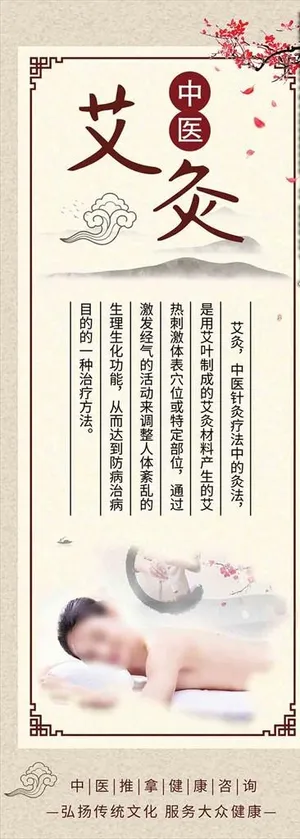 中医
艾灸
艾灸，中医针灸疗法中的灸法，
是用艾叶制成的艾灸材料产生的艾
热刺激体表穴位或特定部位，通过
激发经气的活动来调整人体紊乱的
生理生化功能，从而达到防病治病
目的的一种治疗方法。
中|医|推|拿|健|康|咨|询
—弘扬传统文化 服务大众健康—